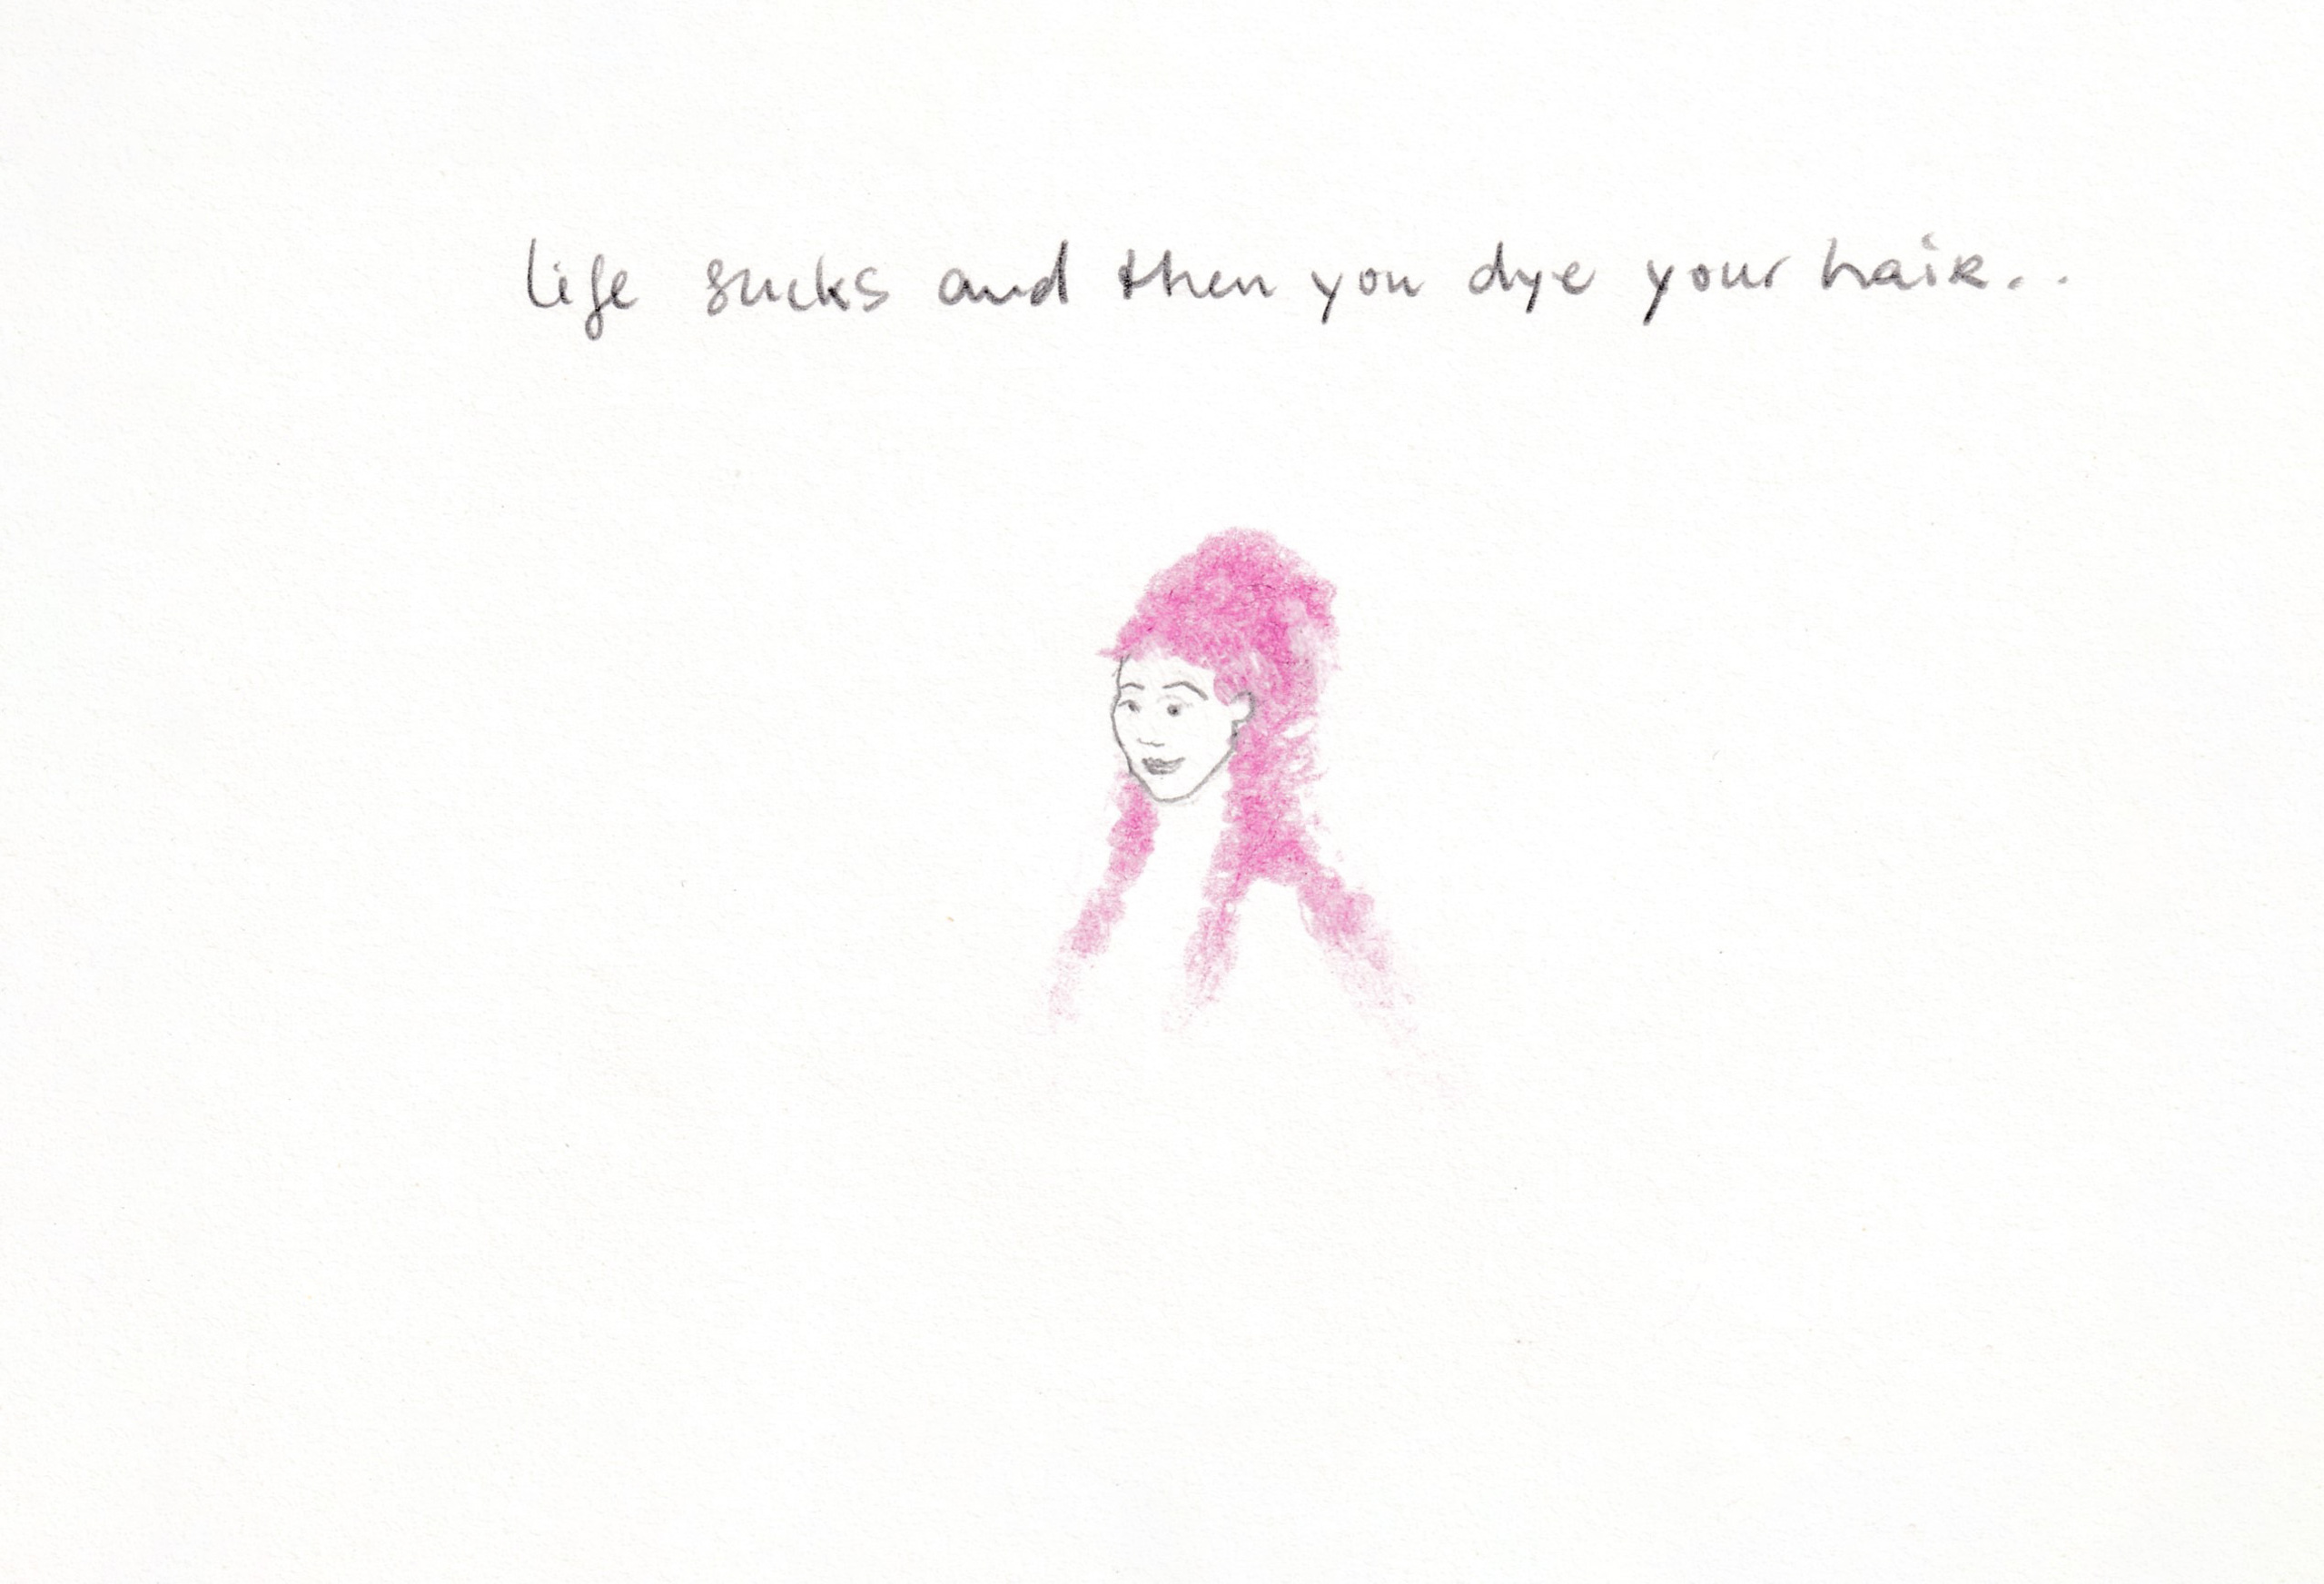 life sucks and then you dye your hair..